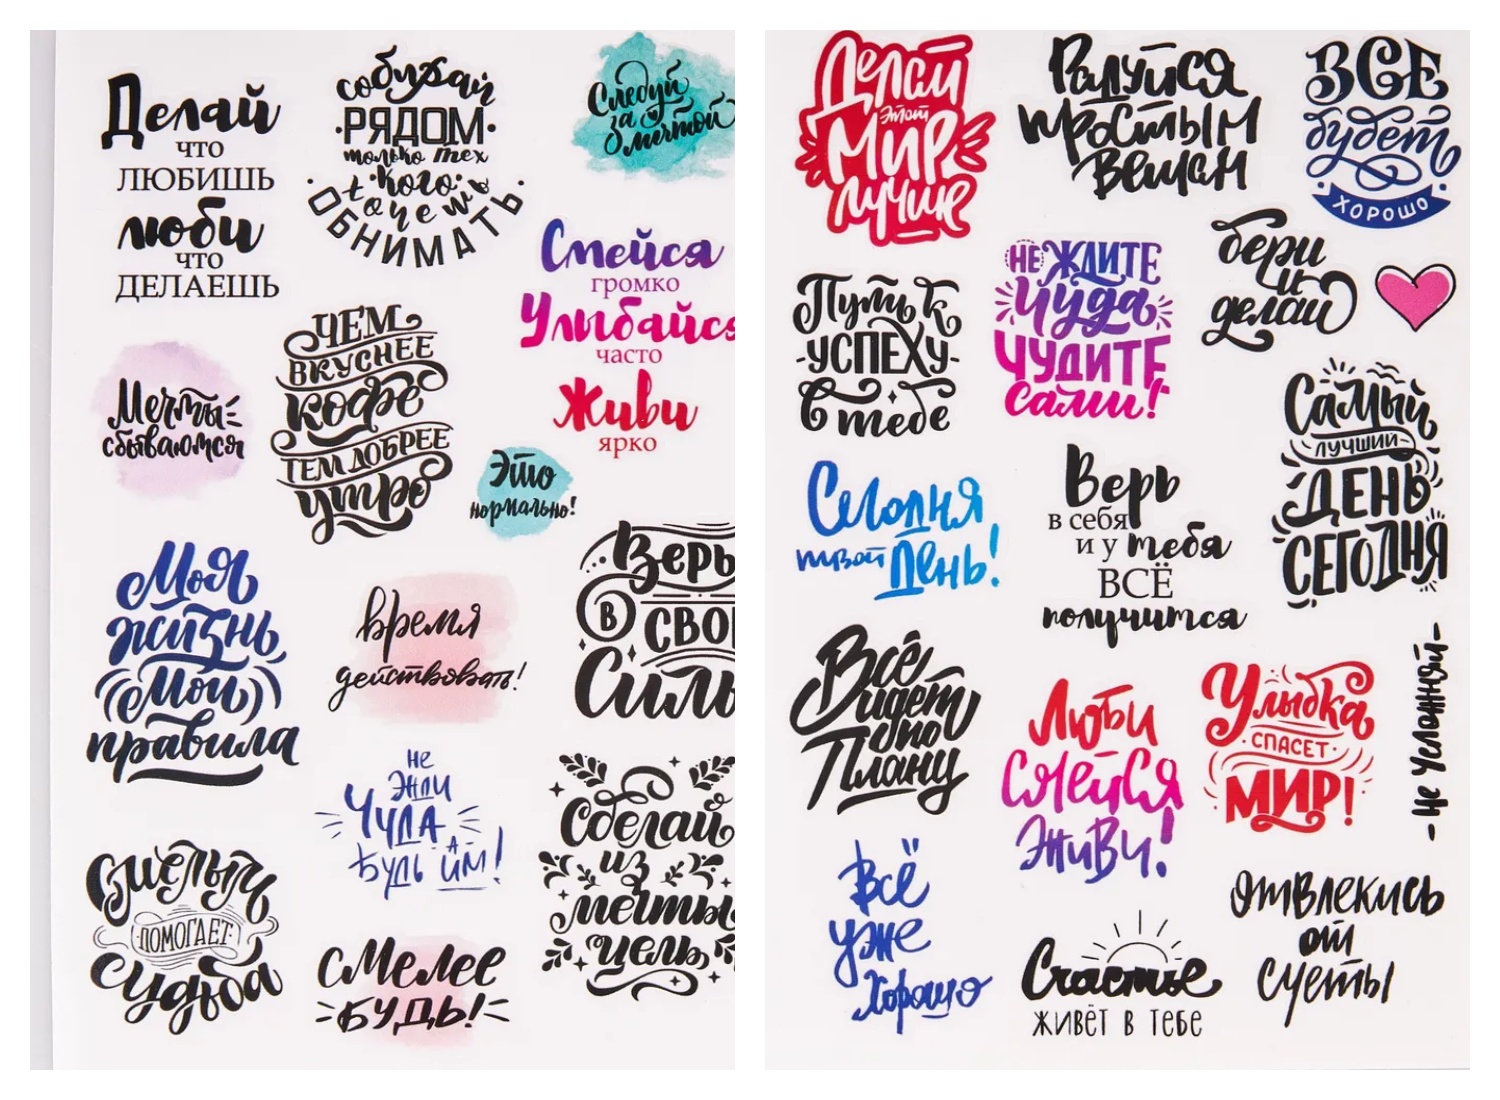 Делай
что
ЛЮБИШЬ
люби
что
ДЕЛАЕШЬ
РЯДОМ
только тех
кого
хочешь
ОБНИМАТЬ
Следуй
за
мечтой
Смейся
громко
Улыбайся
часто
Живи
ярко
ЧЕМ
ВКУСНЕЕ
кофе
ТЕМ ДОБРЕЕ
утро
Мечты
сбываются
Это
нормально!
Моя
жизнь
Мои
правила
время
действовать!
Верь
В
СВОИ
Силы
не
ЖДИ
ЧУДА
БУДЬ А ИМ!
Сделай
из
мечты
цель
Смелым
ПОМОГАЕТ
судьба
СМЕЛЕЕ
БУДЬ!
Делай
Этот
Мир
лучше
Радуйся
простым
Вещам
ВСЕ
будет
ХОРОШО
бери
и
делай
Путь к
УСПЕХУ
в тебе
НЕ ЖДИТЕ
Чуда
ЧУДИТЕ
сами!
Самый
ЛУЧШИЙ
ДЕНЬ
СЕГОДНЯ
Сегодня
твой День!
Верь
в себя
и у тебя
ВСЁ
получится
Всё
идет
по
Плану
Люби
Смейся
Живи!
Улыбка
СПАСЕТ
МИР!
Всё
уже
Хорошо
Счастье
ЖИВЁТ В ТЕБЕ
отвлекись
от
суеты